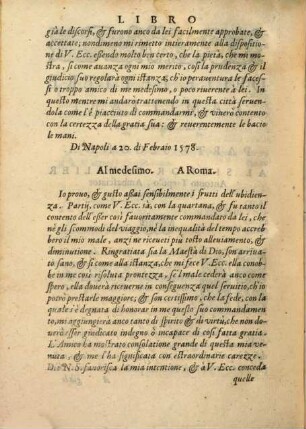 LIBRO
già le discorsi, & furono anco da lei facilmente approbate, &
accettate; nondimeno mi rimetto intieramente alla dispositione
di V. Ecc. essendo molto ben certo, che la pietà, che mi mostra,
si come auanza ogni mio merito, così la prudenza & il
giudicio suo regolarà ogni istanza, ch'io perauentura le facessi
ò troppo amico di me medesimo, ò poco riuerente à lei. In
questo mentre mi andarò trattenendo in questa città seruendola
come l'è piacciuto di commandarmi, & viuerò contento
con la certezza della gratia sua: & reuerentemente le bacio
le mani.
Di Napoli a 20. di Febraio 1578.
Al medesimo. A Roma.
Io prouo, & gusto assai sensibilmente i frutti dell'ubidienza.
Partij, come V. Ecc. sà, con la quartana, & fu tanto il
contento dell'esser così fauoritamente commandato da lei, che
nè gli scommodi del viaggio, nè la inequalità del tempo accrebbero
il mio male, anzi ne riceuti più tosto alleuiamento, &
diminutione. Ringratiata sia la Maestà di Dio, son arriuato
sano, & si come alla stanchezza, che mi fece V. Ecc. ella conobbe
in me così risoluta prontezza, se'l male cederà anco come
spero, ella douerà riceuerne in conseguenza quel seruitio, ch'io
potrò prestarle maggiore; & son certissimo, che la fede, con la
quale s'è degnata di honorar in me questo suo commandamento,
mi aggiungerà anco tanto di spirito & di virtù, che non douerò
esser giudicato indegno ò incapace di così fatta gratia.
L'Amico ha mostrato consolatione grande di questa mia venuta,
& me l'ha significata con estraordinarie carezze.
Dio N. S. fauorisca la mia intentione, & à V. Ecc. conceda
quelle